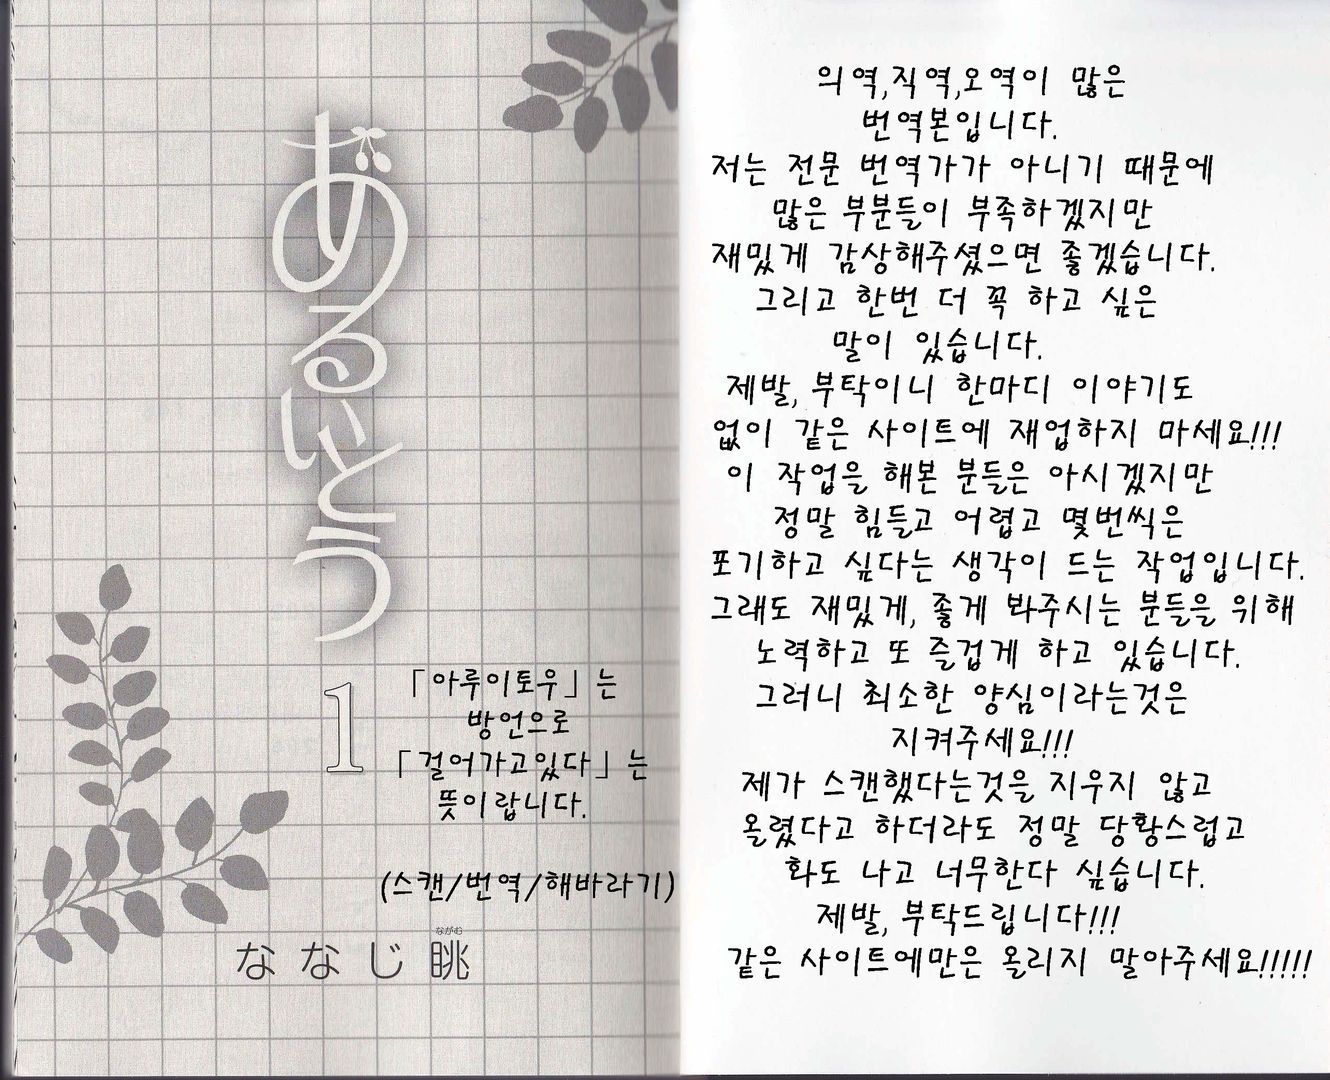 あるいとう
1
「아루이토우」는
방언으로
「걸어가고있다」는
뜻이랍니다.
(스캔/번역/해바라기)
ながむ
ななじ眺
의역,직역,오역이 많은
번역본입니다.
저는 전문 번역가가 아니기 때문에
많은 부분들이 부족하겠지만
재밌게 감상해주셨으면 좋겠습니다.
그리고 한번 더 꼭 하고 싶은
말이 있습니다.
제발, 부탁이니 한마디 이야기도
없이 같은 사이트에 재업하지 마세요!!!
이 작업을 해본 분들은 아시겠지만
정말 힘들고 어렵고 몇번씩은
포기하고 싶다는 생각이 드는 작업입니다.
그래도 재밌게, 좋게 봐주시는 분들을 위해
노력하고 또 즐겁게 하고 있습니다.
그러니 최소한 양심이라는것은
지켜주세요!!!
제가 스캔했다는것을 지우지 않고
올렸다고 하더라도 정말 당황스럽고
화도 나고 너무한다 싶습니다.
제발, 부탁드립니다!!!
같은 사이트에만은 올리지 말아주세요!!!!!